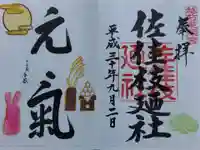 奉拝
佐佳枝廼社
平成三十年九月二日
元氣